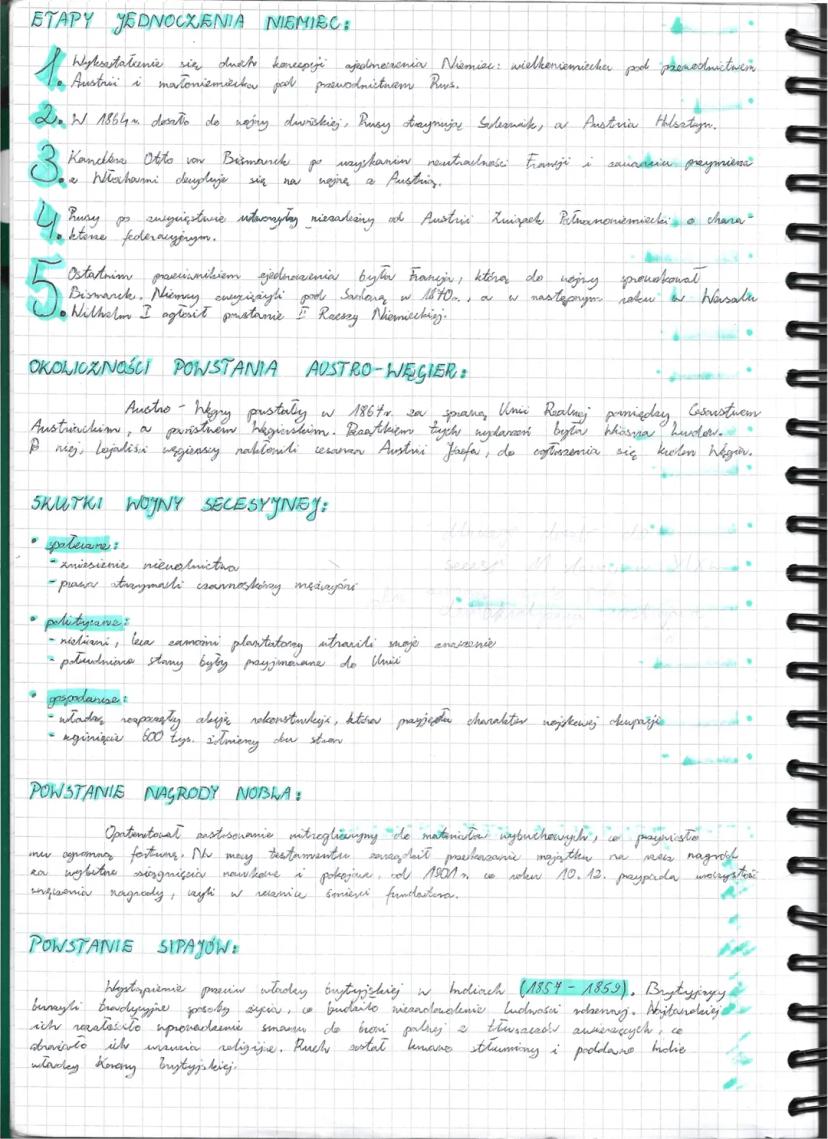 ETAPY JEDNOCZENIA NIEMIEC:
1. Wykształcenie się dwóch koncepcji zjednoczenia Niemiec: wielkoniemiecka pod przewodnictwem
Austrii i małoniemiecka pod przewodnictwem Prus.
2. W 1864r. doszło do wojny duńskiej, Prusy otrzymują Szlezwik, a Austria Holsztyn.
3. Kanclerz Otto von Bismarck po uzyskaniu neutralności Francji i zawarciu przymierza
z Włochami decyduje się na wojnę z Austrią.
4. Prusy po zwycięstwie utworzyły niezależny od Austrii Związek Północnoniemiecki o chara-
kterze federacyjnym.
5. Ostatnim przeciwnikiem zjednoczenia była Francja, którą do wojny sprowokował
Bismarck. Niemcy zwyciężyli pod Sedanem w 1870r., a w następnym roku w Wersalu
Wilhelm I ogłosił powstanie II Rzeszy Niemieckiej.
OKOLICZNOŚCI POWSTANIA AUSTRO-WĘGIER:
Austro-Węgry powstały w 1867r. za sprawą Unii Realnej pomiędzy Cesarstwem
Austriackim, a państwem Węgierskim. Początkiem tych wydarzeń była Wiosna Ludów.
P niej, lojaliści węgierscy nakłonili cesarza Austrii Józefa, do ogłoszenia się królem Węgier.
SKUTKI WOJNY SECESYJNEJ:
• społeczne:
- zniesienie niewolnictwa
- prawa otrzymali czarnoskórzy mężczyźni
• polityczne:
- nieliczni, lecz zamożni plantatorzy utracili swoje znaczenie
- południowe stany były przyjmowane do Unii
• gospodarcze:
- władzę rozpoczęły akcję rekonstrukcji, która przyjęła charakter wojskowej okupacji
- zginięcie 600 tys. żołnierzy obu stron
POWSTANIE NAGRODY NOBLA:
Opatentował zastosowanie nitrogliceryny do materiałów wybuchowych, co przyniosło
mu ogromną fortunę. Na mocy testamentu zarządził przekazanie majątku na rzecz nagród
za wybitne osiągnięcia naukowe i pokojowe, od 1901r. co roku 10.12. przypada uroczystość
wręczenia nagrody, czyli w rocznice śmierci fundatora.
POWSTANIE SIPAJÓW:
Wystąpienie przeciw władzy brytyjskiej w Indiach (1857-1859). Brytyjczycy
burzyli tradycyjne sposoby życia, co budziło niezadowolenie ludności rdzennej. Najbardziej
ich rozzłościło wprowadzenie smaru do broni palnej z tłuszczów zwierzęcych, co
obrażało ich uczucia religijne. Ruch został krwawo stłumiony i poddano Indie
władzy Korony brytyjskiej.